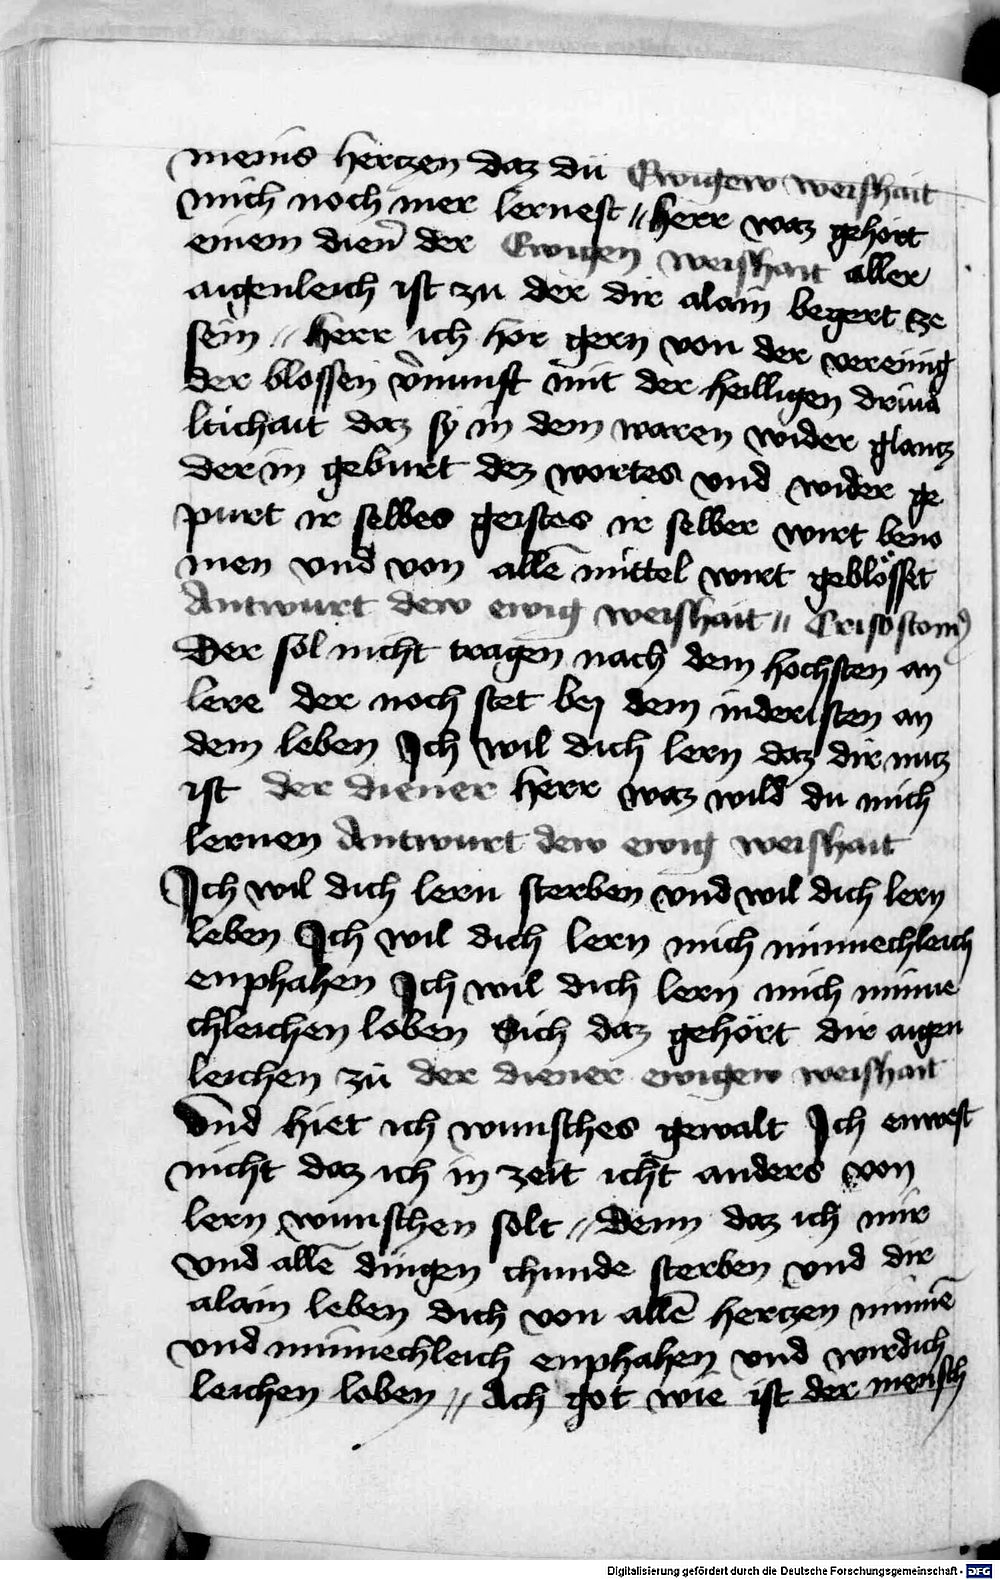 meins hertzen daz du Ewigew weishait
mich noch mer lernest // herr waz gehört
einem dien̄ der Ewigen weishait aller
aigenleich ist zu der dir alain begert ze
sein // herr ich hor gern von der vereinig
der blossen v̄nunft mit der heilligen driua
ltichait daz sy in dem waren wider glantz
der in geburt dez wortes vnd wider ge
purt ir selbes geistes ir selber wirt beno
men vnd von allē mittel wirt geblösset
Antwurt dew ewig weishait //
Der sol nicht tragen nach dem hochsten an
lere der noch stet bej dem inderisten an
dem leben Ich wil dich lern daz dir nutz
ist der diener herr waz wild du mich
lernen Antwurt dew ewig weishait
Ich wil dich lern sterben vnd wil dich lern
leben Ich wil dich lern mich minnechleich
enphahen Ich wil dich lern mich minne
chleichen loben Sich daz gehört dir aigen
leichen zu der diener ewigew weishait
vnd hiet ich wunsches gewalt Ich enwest
nicht daz ich in zeit icht anders von
lern wunschen solt // denn daz ich mir
vnd allē dingen chunde sterben vnd dir
alain leben dich von allē hertzen minnē
vnd minnechleich enphahen vnd wirdich
leichen loben // Ach got wie ist der mensch
Digitalisierung gefördert durch die Deutsche Forschungsgemeinschaft - DFG